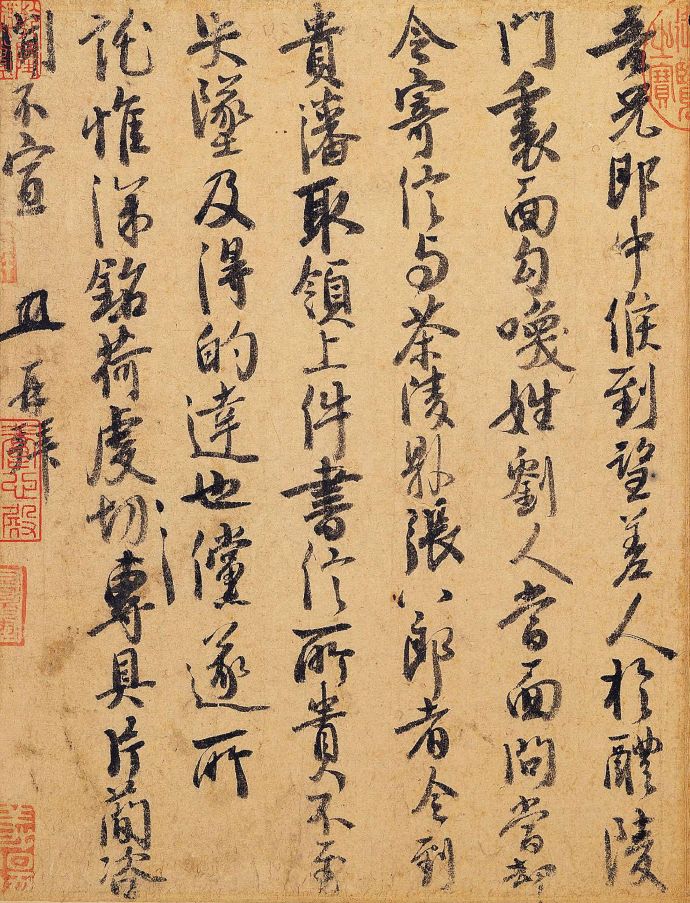 兄郎中候到望差人於醴陵
門裏面勾喚姓劉人當面問當却
令寄信与茶陵縣張八郎者令到
貴藩取領上件書信所貴不至
失墜及得的達也儻遂所
託惟深銘荷虔切專具片簡咨
聞不宣 再拜